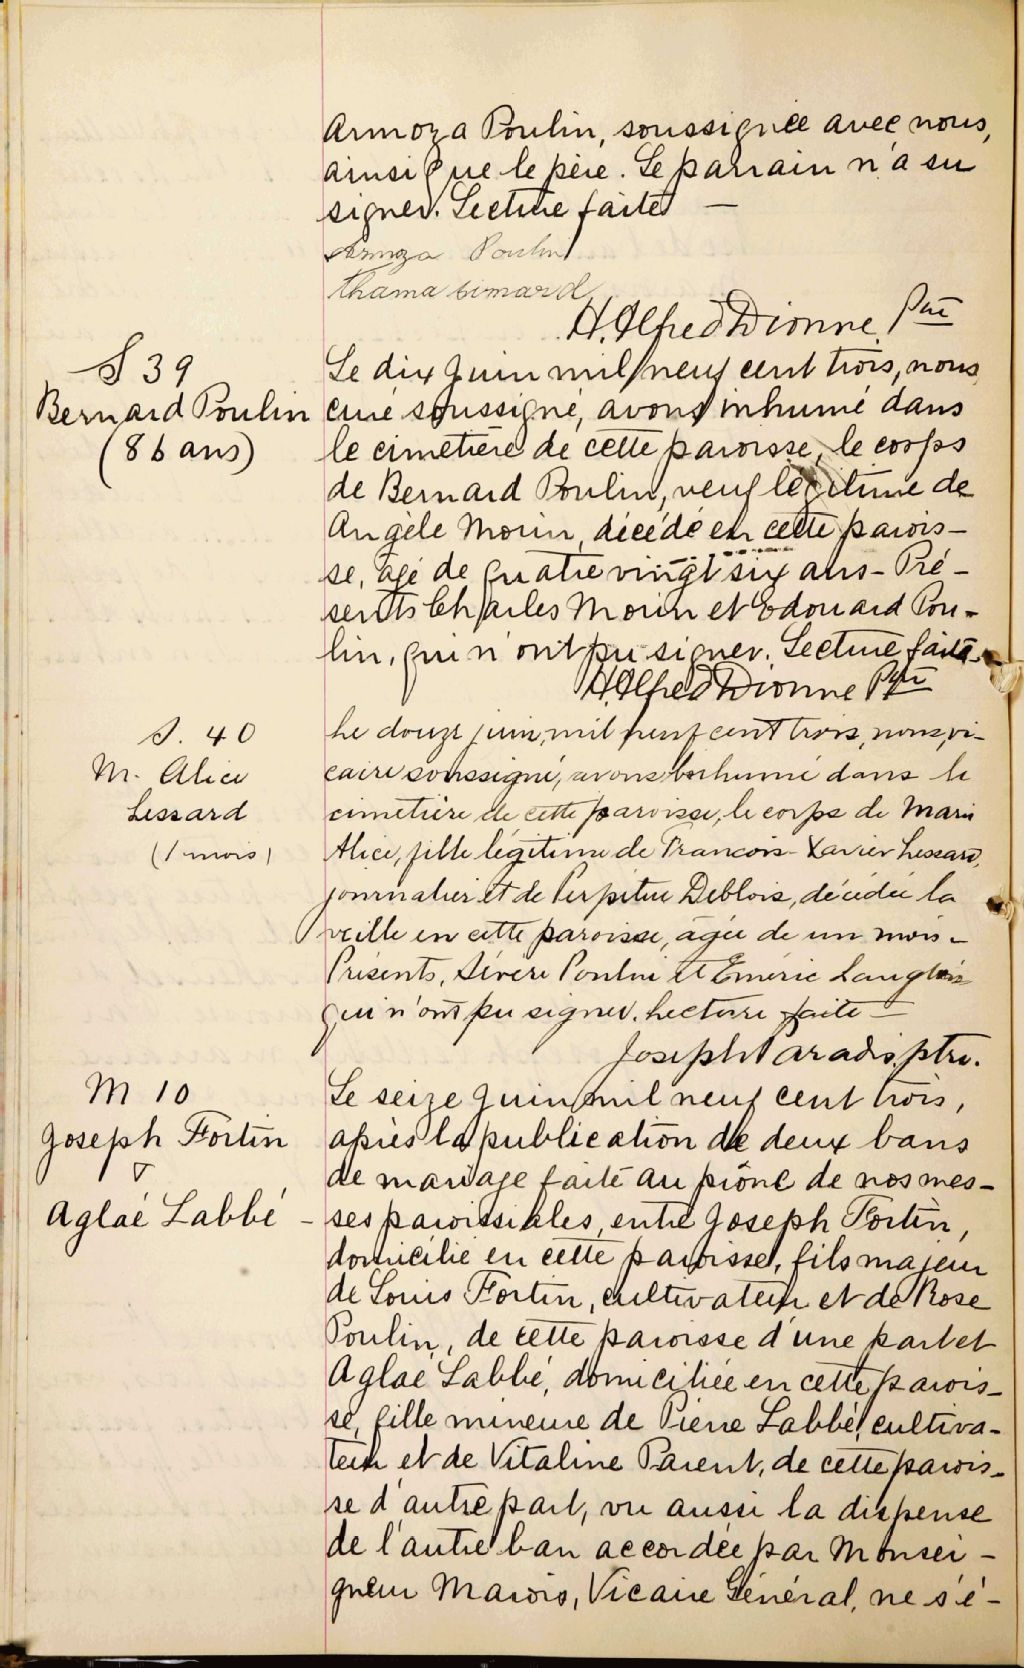 Armoza Poulin, soussignée avec nous,
ainsi que le père. Le parrain n'a su
signer. Lecture faite —
Armoza Poulin
Thama Simard
H. Alfred Dionne Ptre
S 39
Bernard Poulin
(86 ans)
Le dix Juin mil neuf cent trois, nous
curé soussigné, avons inhumé dans
le cimetière de cette paroisse, le corps
de Bernard Poulin, veuf légitime de
Angèle Morin, décédé en cette parois-
se, âgé de quatre vingt six ans - Pré-
sents Charles Morin et Edouard Pou-
lin, qui n'ont pu signer. Lecture faite.
H. Alfred Dionne Ptre
S. 40
M. Alice
Lessard
(1 mois)
Le douze juin, mil neuf cent trois, nous, vi-
caire soussigné, avons inhumé dans le
cimetière de cette paroisse, le corps de Marie
Alice, fille légitime de Francois-Xavier Lessard,
journalier et de Perpétue Deblois, décédée la
veille en cette paroisse, âgée de un mois -
Présents, Sévère Poulin et Emérie Langlois
qui n'ont pu signer. Lecture faite —
Joseph Paradis, ptre.
M 10
Joseph Fortin
&
Aglaé Labbé -
Le seize Juin mil neuf cent trois,
après la publication de deux bans
de mariage faite au prône de nos mes-
ses paroissiales, entre Joseph Fortin,
domicilié en cette paroisse, fils majeur
de Louis Fortin, cultivateur et de Rose
Poulin, de cette paroisse d'une part et
Aglaé Labbé, domiciliée en cette parois-
se, fille mineure de Pierre Labbé, cultiva-
teur et de Vitaline Parent, de cette parois-
se d'autre part, vu aussi la dispense
de l'autre ban accordée par Monsei-
gneur Marois, Vicaire Général, ne s'é-